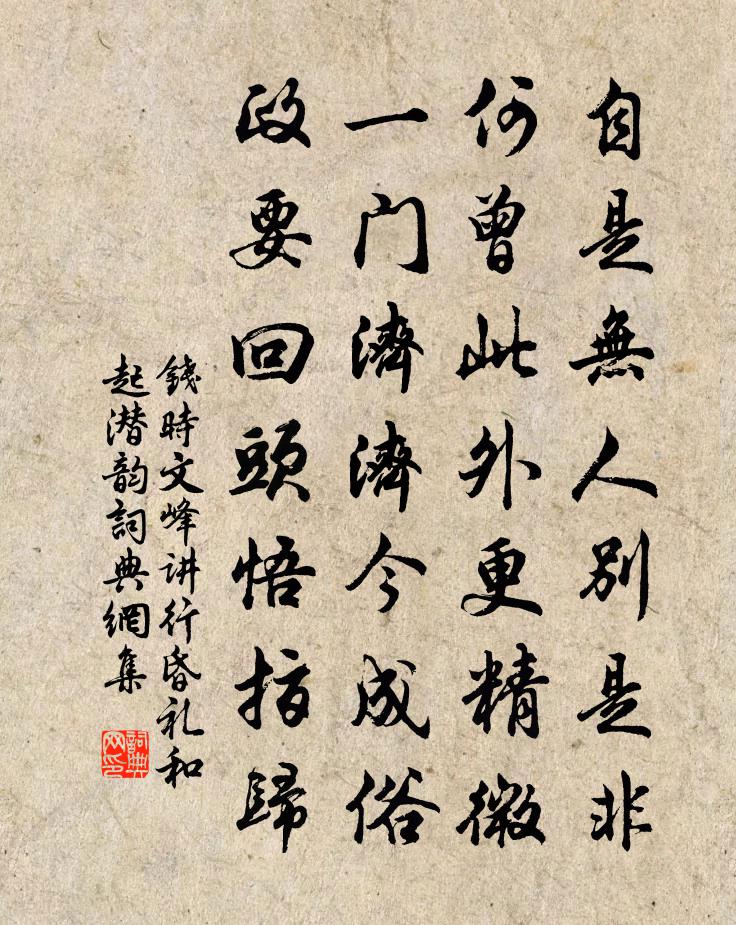 自是無人別是非
何曾此外更精微
一门濟濟今成俗
政要回頭悟指歸
錢時文峰讲行昏礼和
起潜韵詞典網集
詞典网印